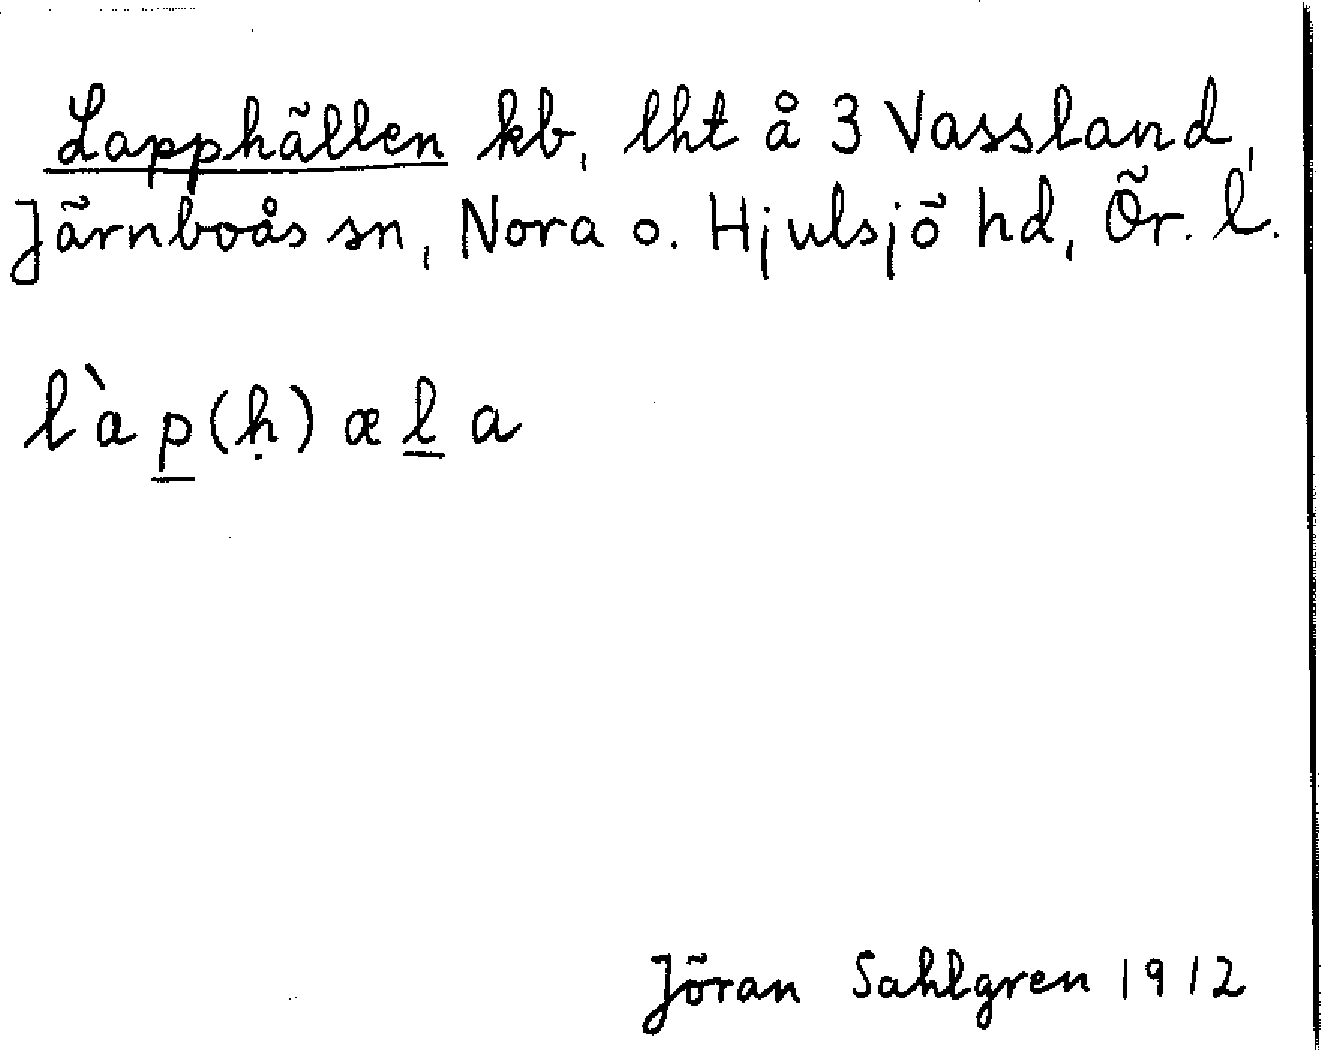 Lapphällen kb, lht å 3 Vassland,
Järnboås sn, Nora o. Hjulsjö hd, Ör. l.
l`ap(ḥ)æla
Jöran Sahlgren 1912